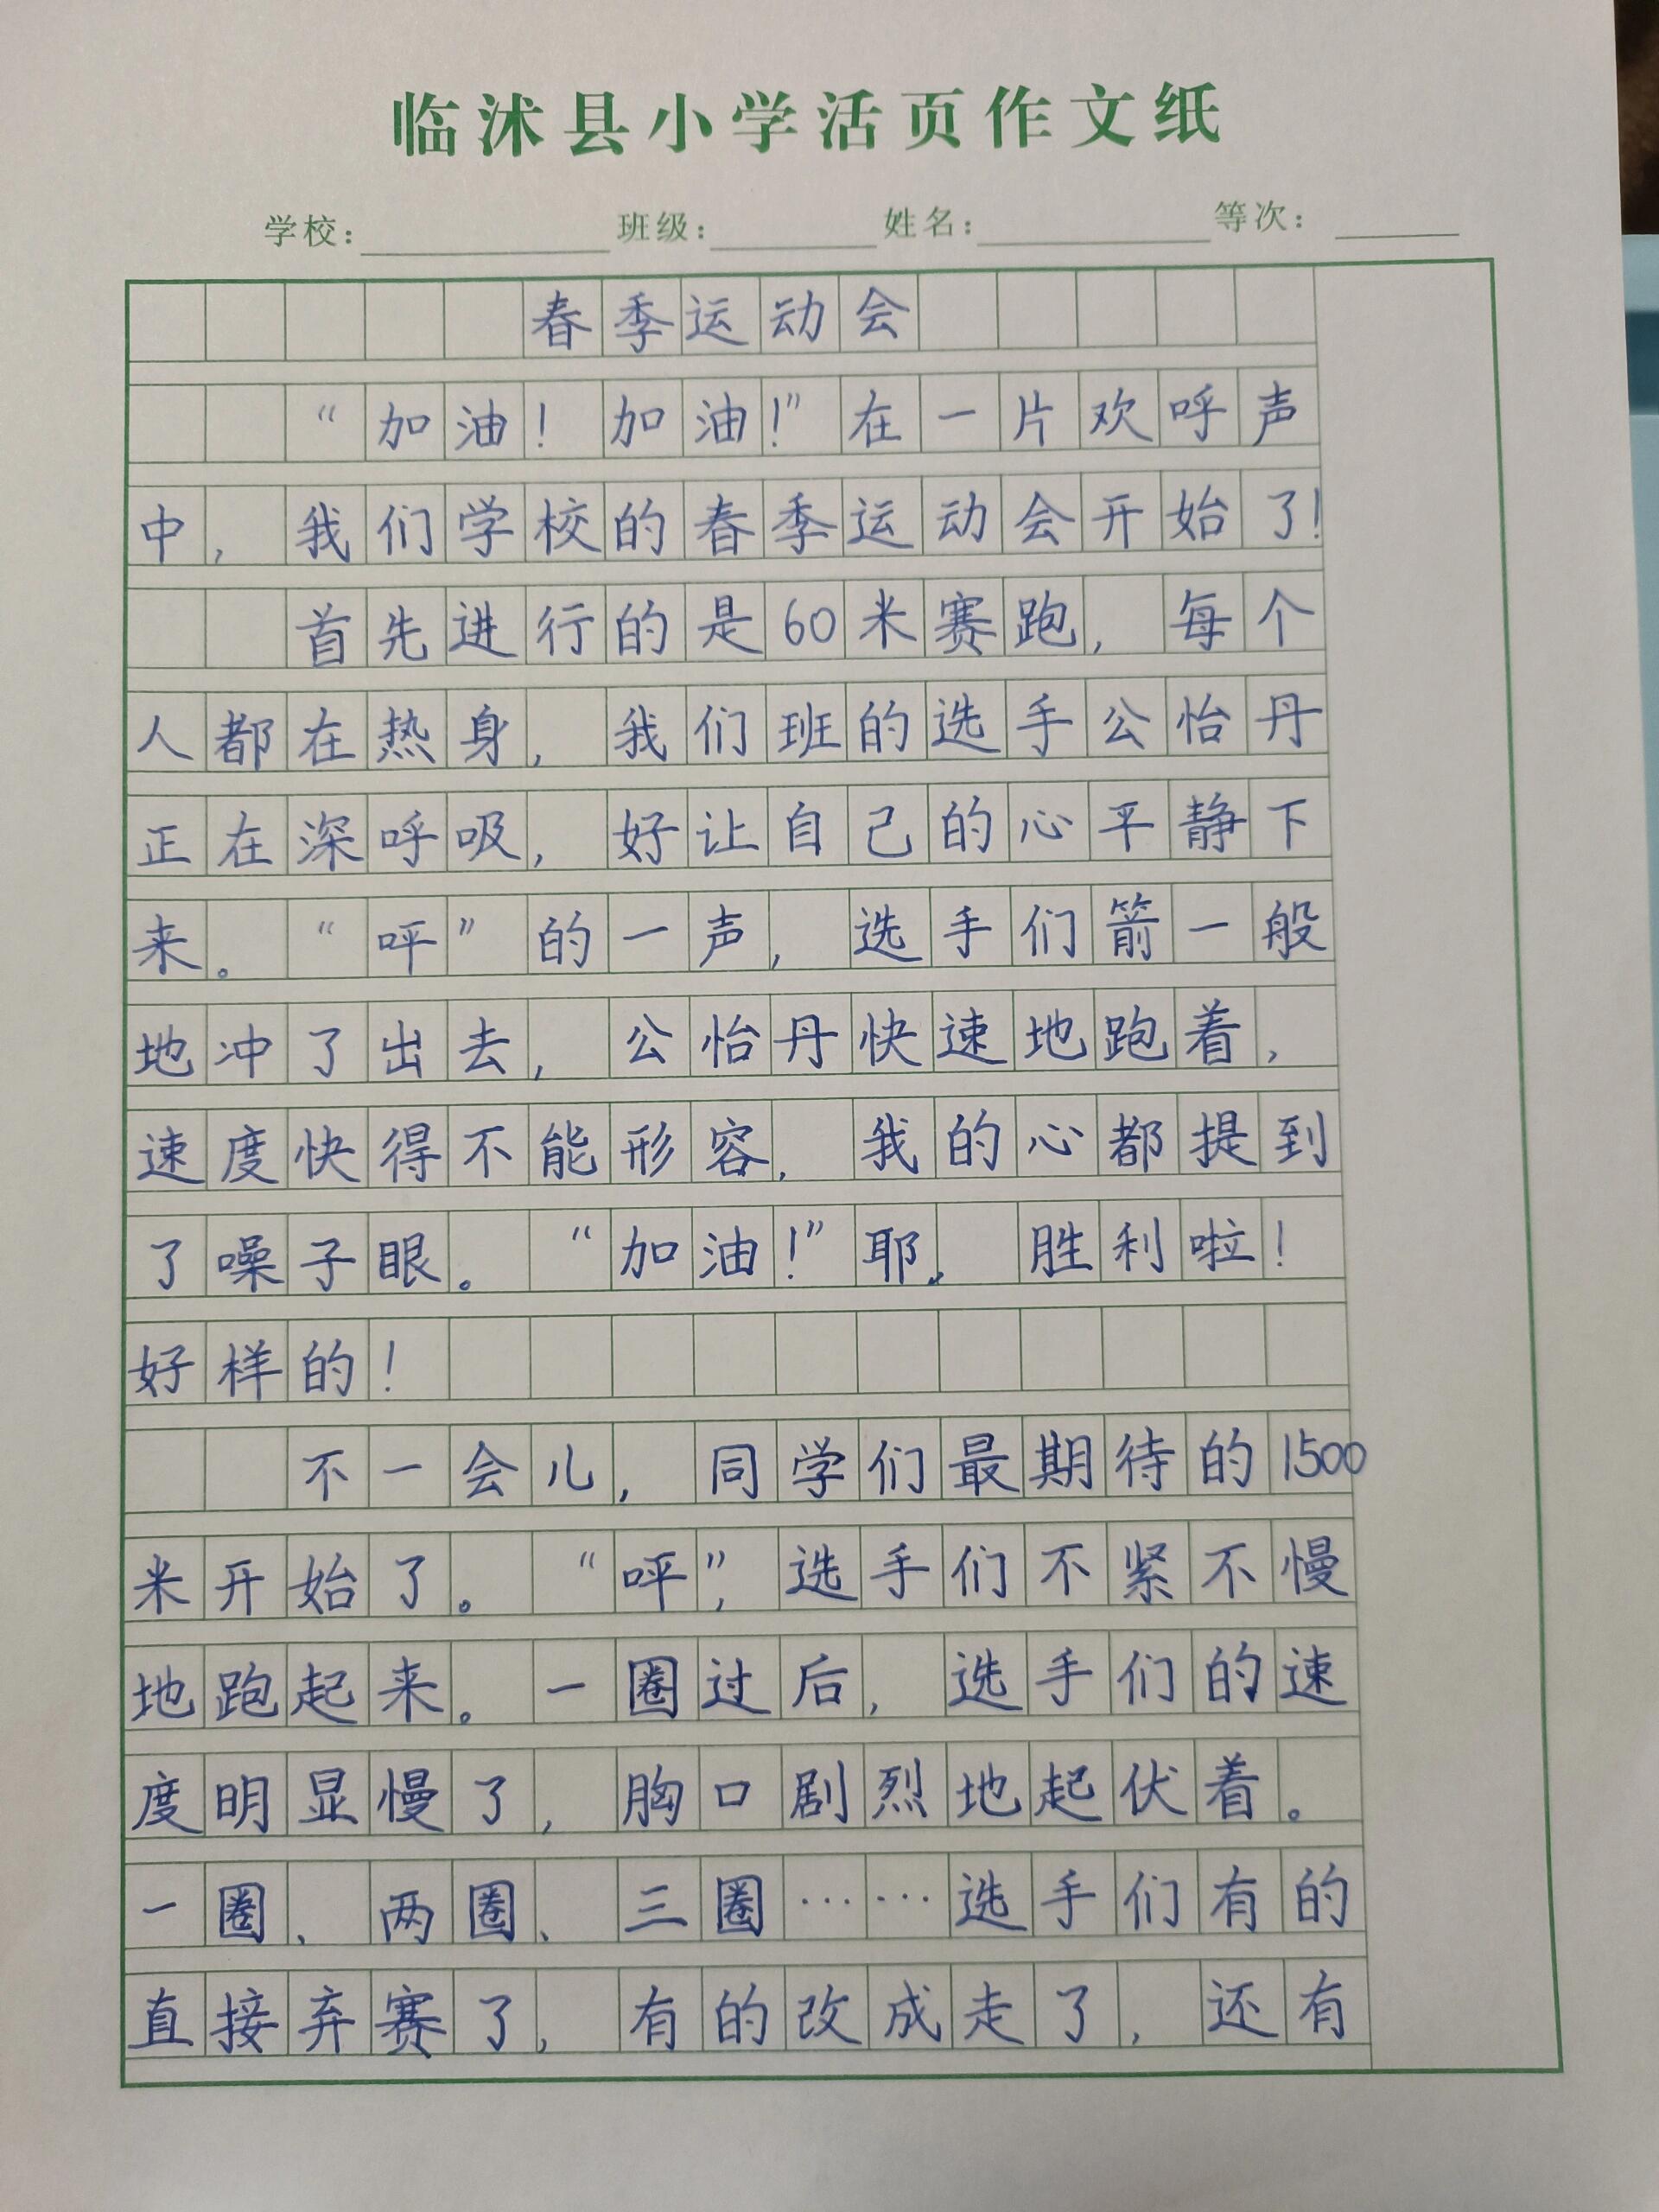 临沭县小学活页作文纸
学校： 班级： 姓名： 等次：
春季运动会
“加油！加油！”在一片欢呼声
中，我们学校的春季运动会开始了！
首先进行的是60米赛跑，每个
人都在热身，我们班的选手公怡丹
正在深呼吸，好让自己的心平静下
来。“呯”的一声，选手们箭一般
地冲了出去，公怡丹快速地跑着，
速度快得不能形容，我的心都提到
了噪子眼。“加油！”耶，胜利啦！
好样的！
不一会儿，同学们最期待的1500
米开始了。“呯”，选手们不紧不慢
地跑起来。一圈过后，选手们的速
度明显慢了，胸口剧烈地起伏着。
一圈、两圈、三圈……选手们有的
直接弃赛了，有的改成走了，还有